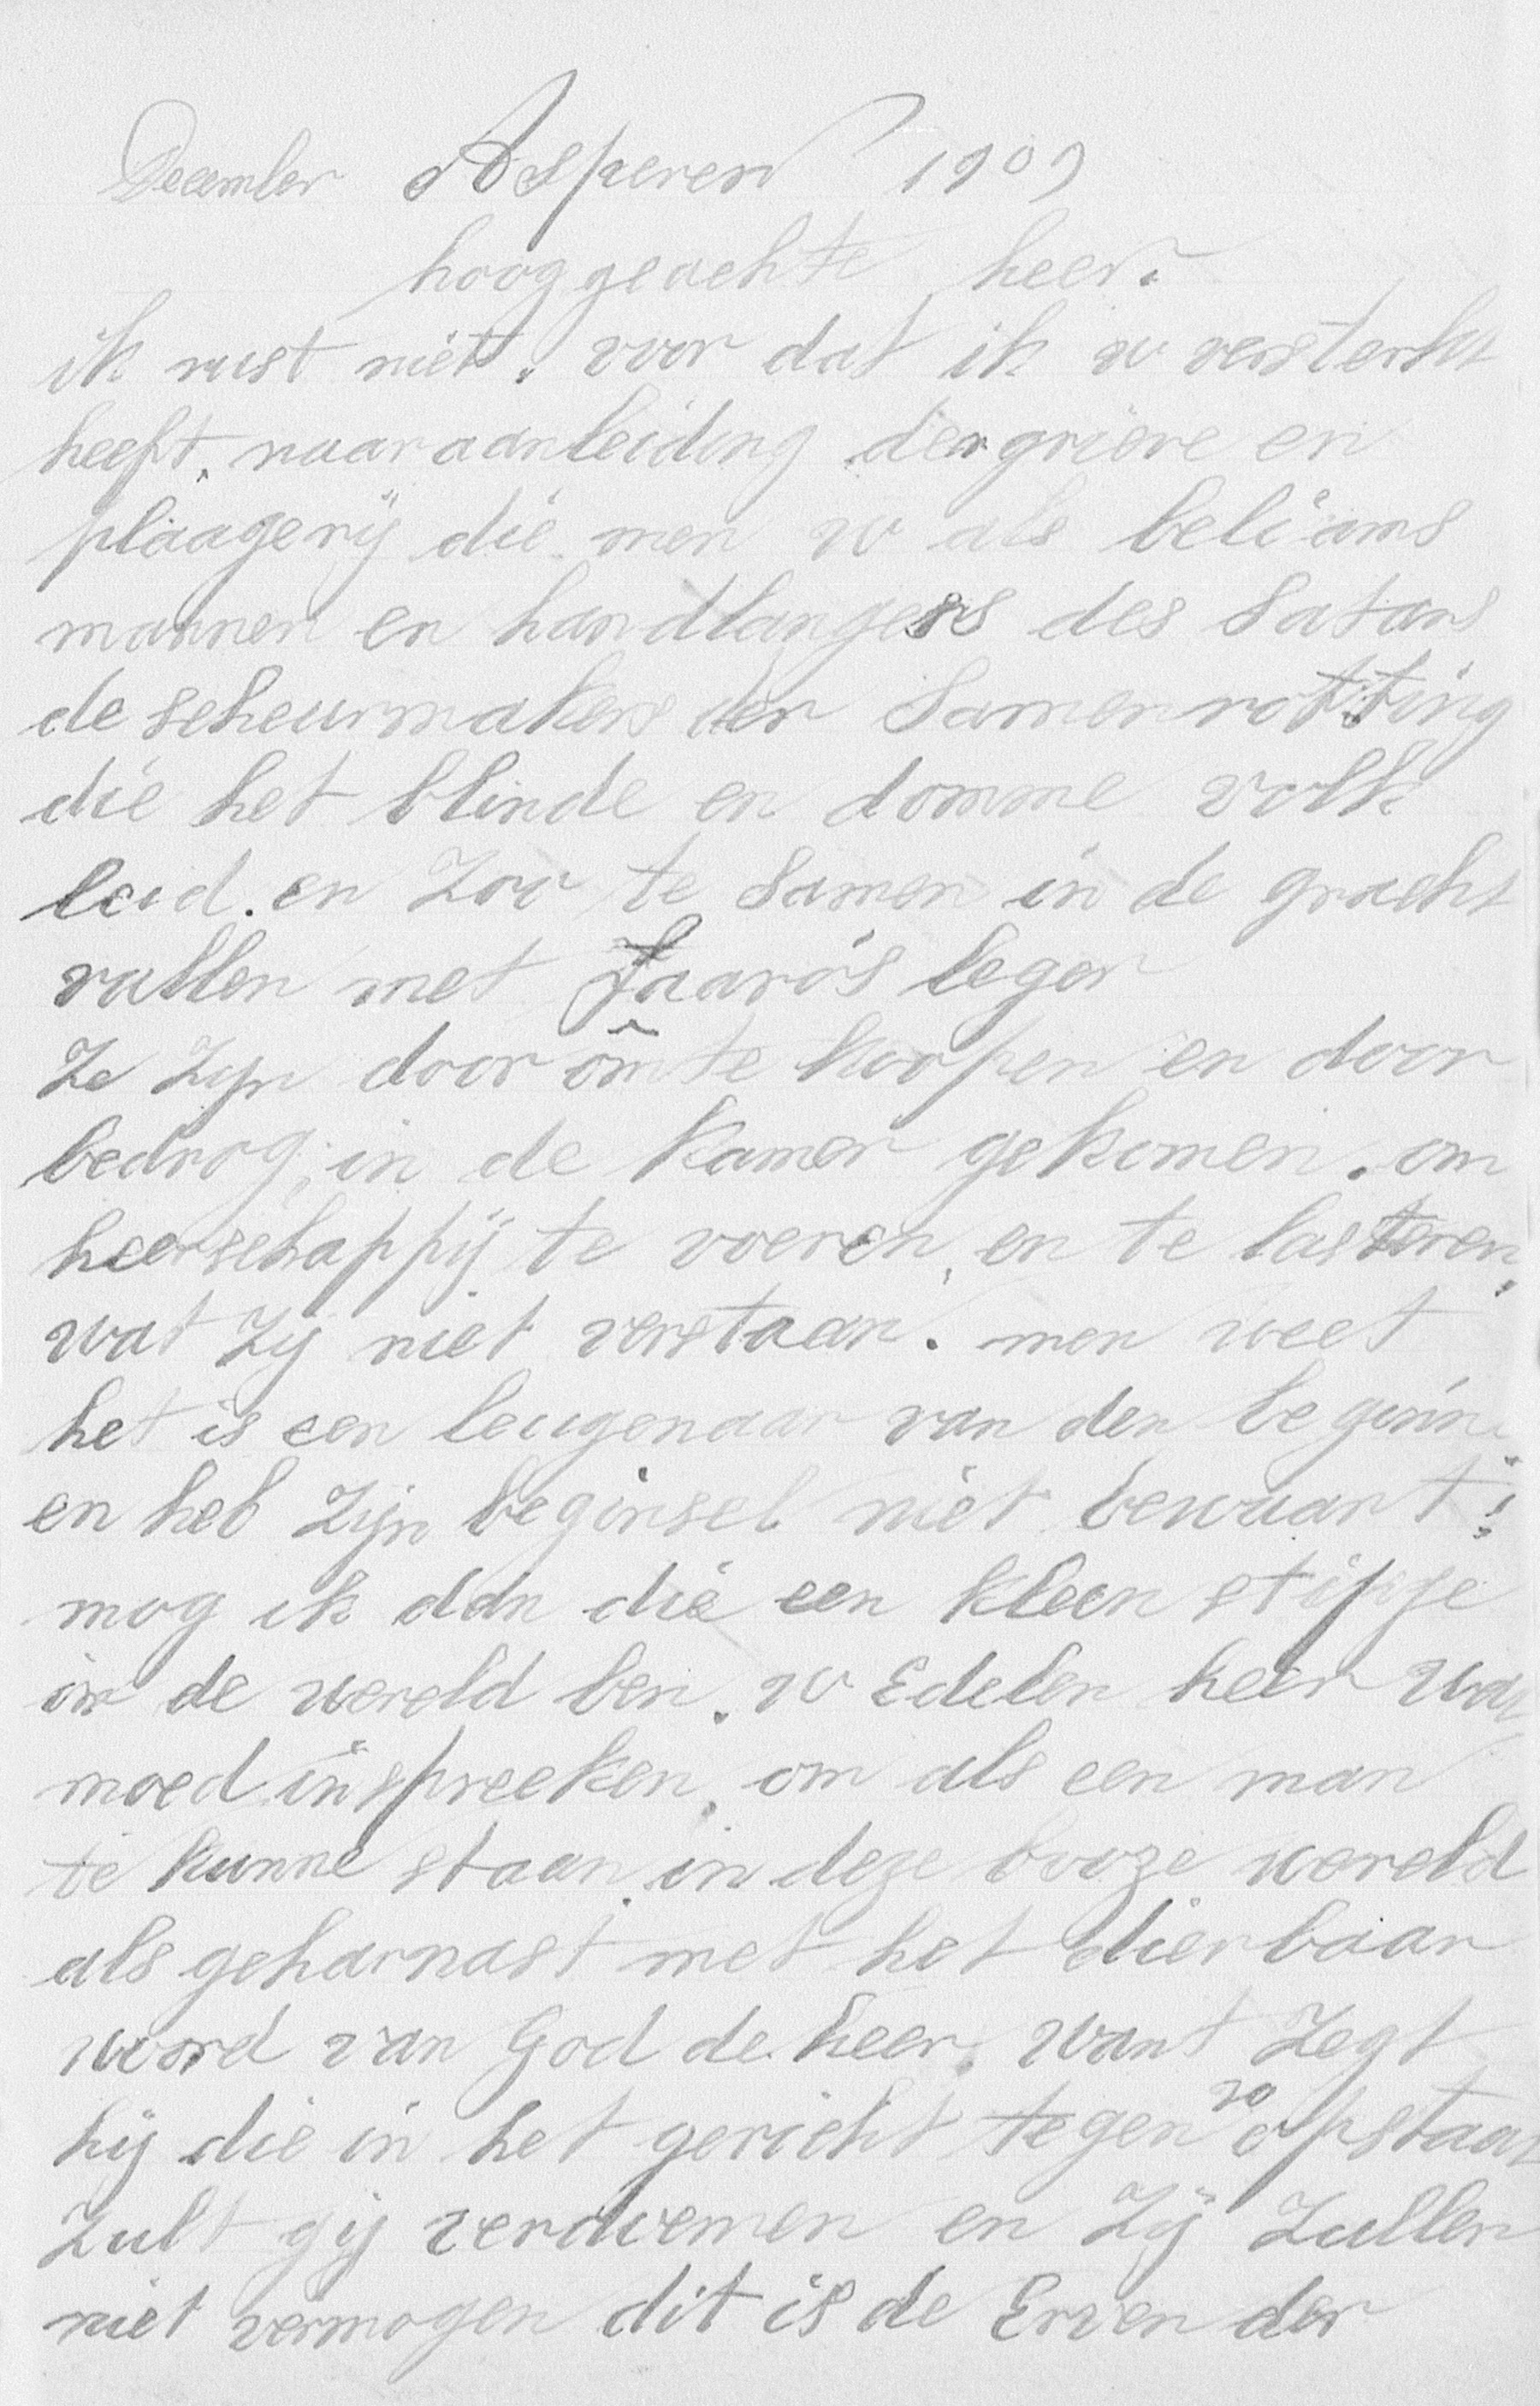 December Asperen 1909
hooggeachte heer.
ik rust niet. voor dat ik u versterkt
heeft, naar aanleiding der grieve en
plaagerij die men u als beliams
mannen en handlangers des Satans
de scheurmakers der Samenrotting
die het blinde en domme volk
leid. en Zoo te Samen in de gracht
vallen met faaro's leger
Ze Zijn door om te koopen en door
bedrog, in de Kamer gekomen. om
heerschappij te voeren, en te lasteren,
wat Zij niet verstaan. men weet
het is een leugenaar van den beginne
en heb Zijn beginsel niet bewaart!
mog ik dan die een kleen stipje
in de wereld ben. u Edelen heer wat
moed inspreeken, om als een man
te kunne staan in deze booze wereld
als geharnast met het dierbaar
woord van God de heer, want Zegt
hij die in het gericht tegen u opstaat
Zult gij verdoemen en Zij Zullen
niet vermogen dit is de Erven der